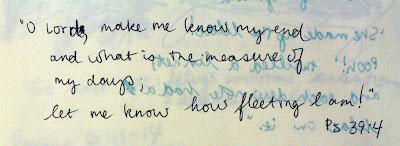 "O Lord, make me know my end
and what is the measure of
my days;
let me know how fleeting I am!"
Ps 39:4